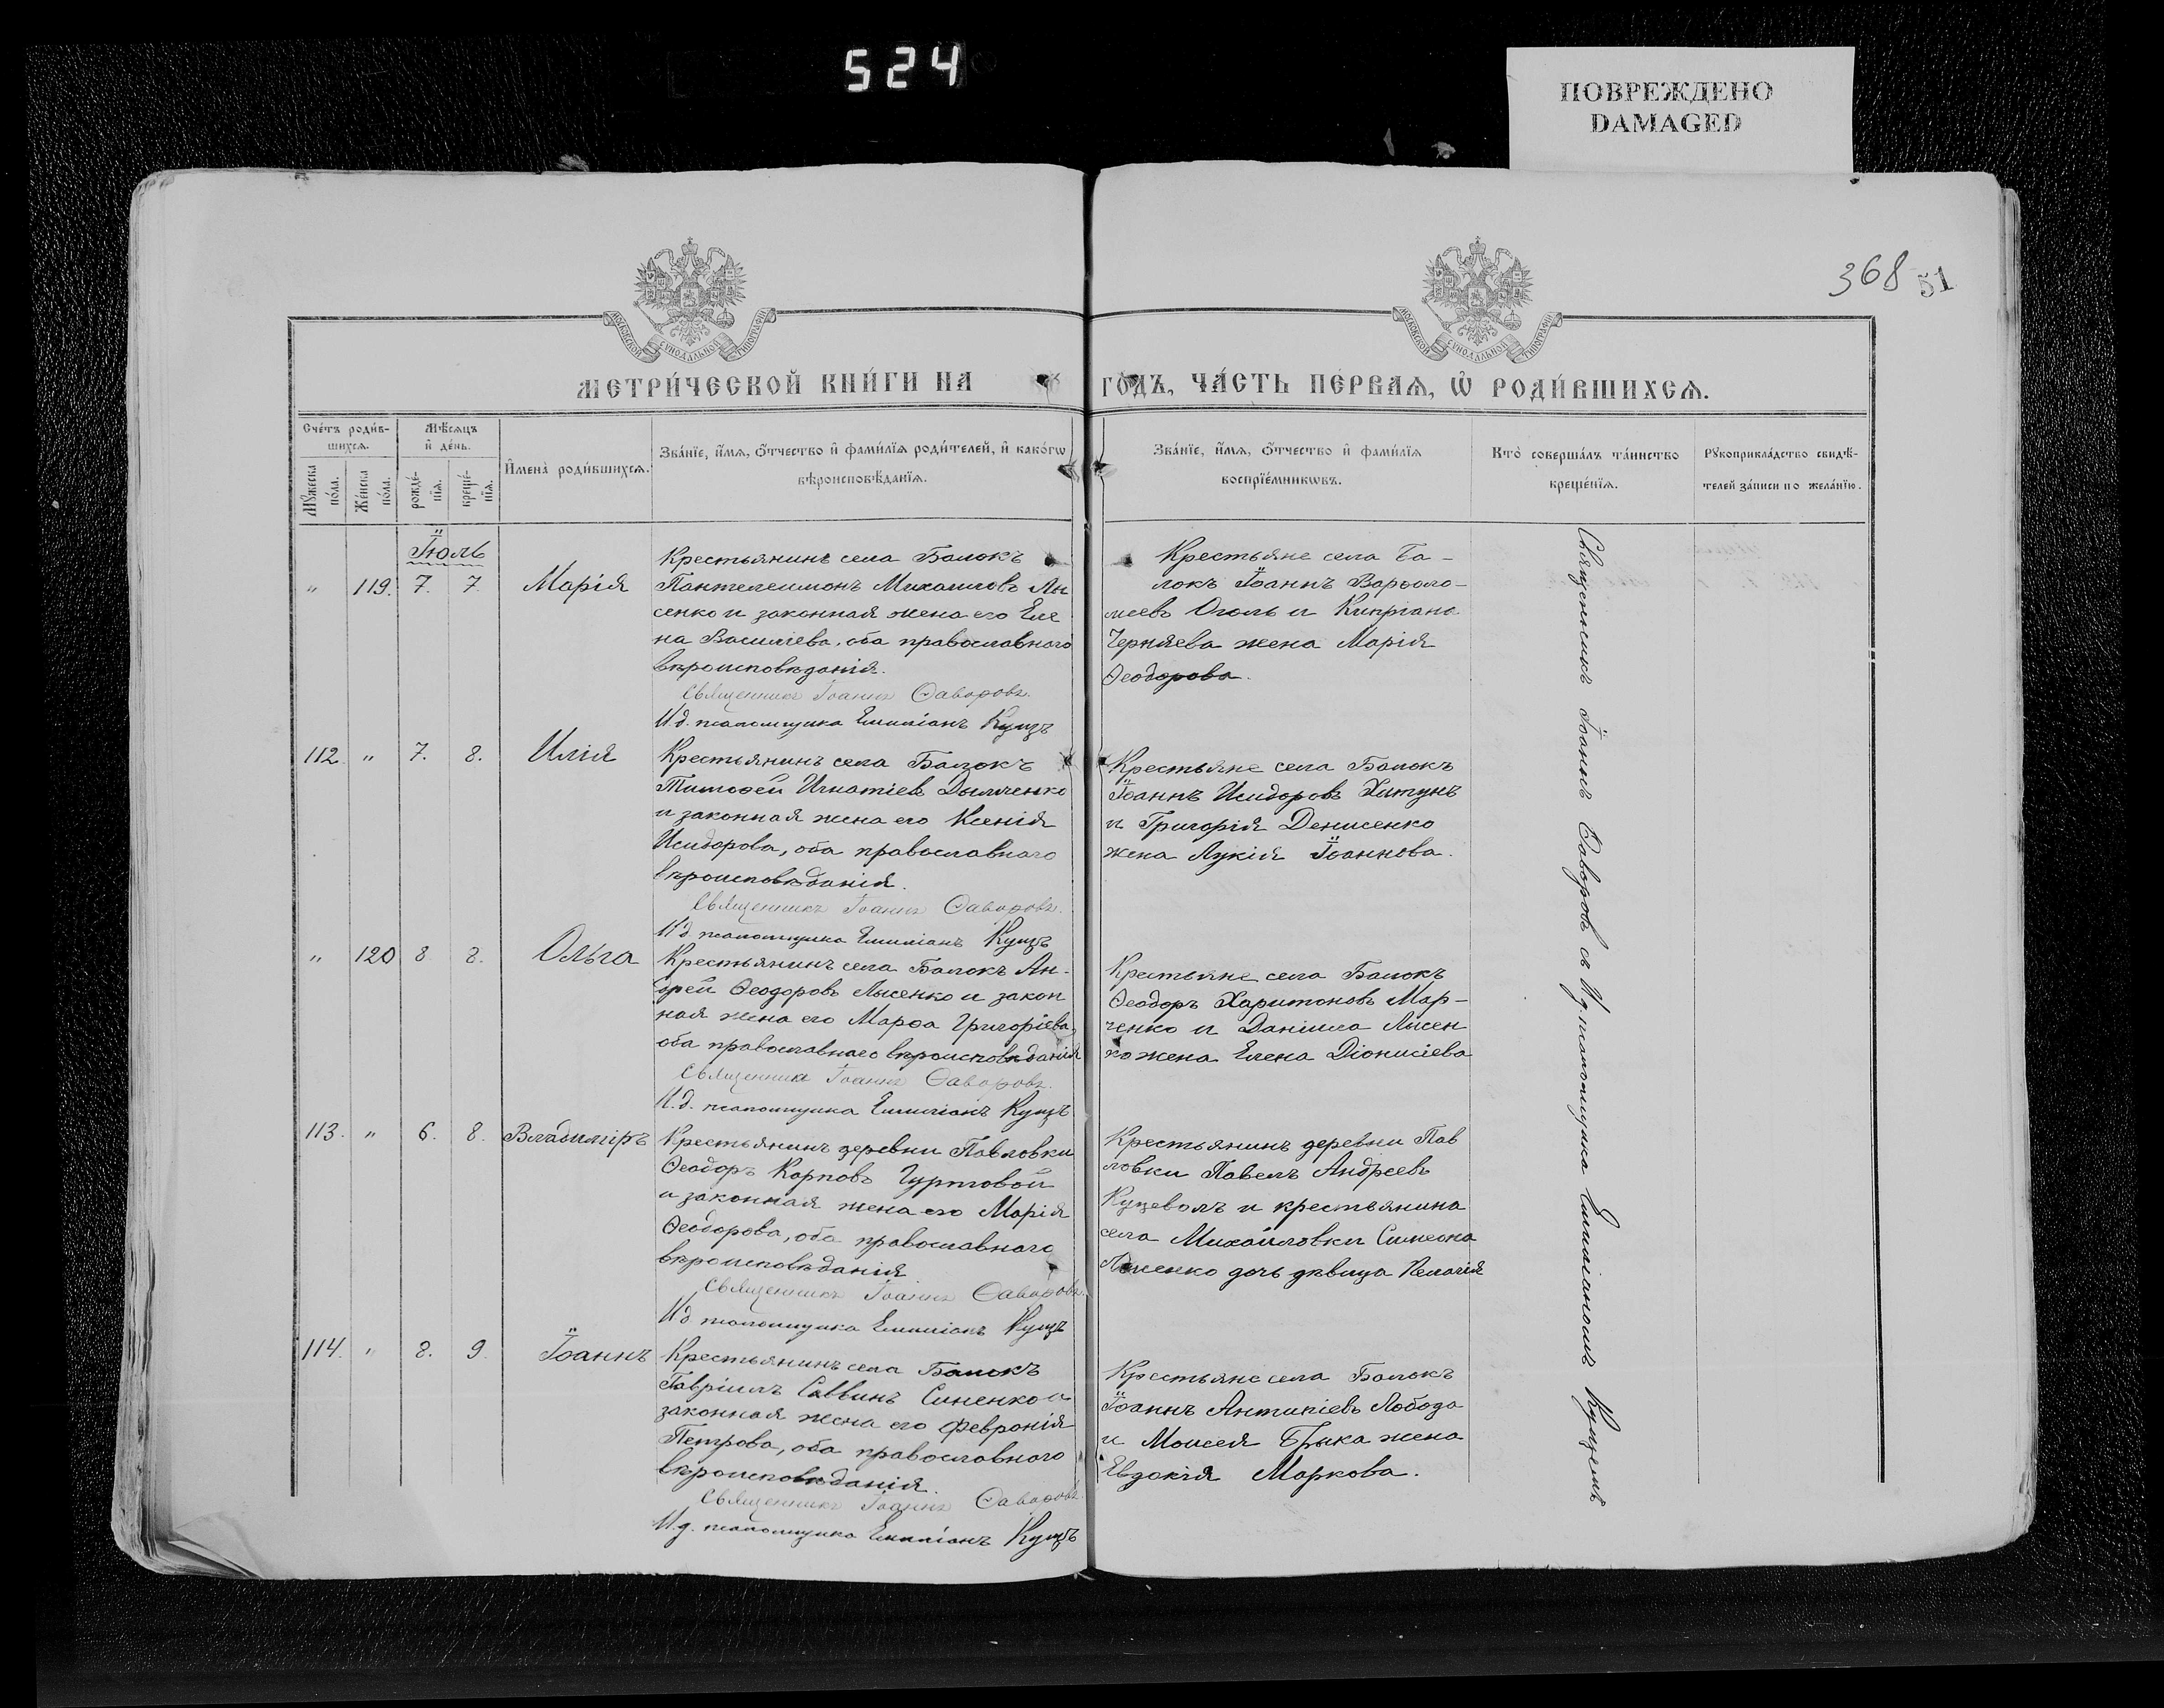 524
ПОВРЕЖДЕНО
DAMAGED
368 51
МОСКОВСКОЙ СУНОДАЛЬНОЙ ТИПОГРАФІИ
МОСКОВСКОЙ СУНОДАЛЬНОЙ ТИПОГРАФІИ
МЕТРИ́ЧЕСКОЙ КНИ́ГИ НА ГО́ДЪ, ЧА́СТЬ ПЕ́РВАѦ, Ѡ҆ РОДИ́ВШИХСѦ.
Сче́тъ роди́в-
шихсѧ.
Мꙋ́жеска
по́ла.
Же́нска
по́ла.
Мѣ́сѧцъ
и҆ де́нь.
рожде́-
нїѧ.
креще́-
нїѧ.
И҆мена̀ роди́вшихсѧ.
Зва́нїе, и҆́мѧ, ѻ҆́тчество и҆ фами́лїѧ роди́телей, и҆ како́гѡ
вѣроисповѣ́данїѧ.
Зва́нїе, и҆́мѧ, ѻ҆́тчество и҆ фами́лїѧ
воспрїе́мникѡвъ.
Кто̀ соверша́лъ та́инство
креще́нїѧ.
Рꙋкоприкла́дство свидѣ́-
телей за́писи по жела́нїю.
Іюль
" 119. 7. 7. Марія
Крестьянинъ села Балокъ
Пантелеимонъ Михаиловъ Лы
сенко и законная жена его Еле
на Василіева, оба православнаго
вѣроисповѣданія.
Священникъ Іоаннъ Ѳаворовъ.
И.д. псаломщика Емиліанъ Кущъ
Крестьяне села Ба-
локъ Іоаннъ Варѳоло-
меевъ Оголь и Кипріана
Черняева жена Марія
Ѳеодорова.
112. " 7. 8. Илія
Крестьянинъ села Балокъ
Тимоѳей Игнатіевъ Дымченко
и законная жена его Ксенія
Исидорова, оба православнаго
вѣроисповѣданія.
Священникъ Іоаннъ Ѳаворовъ.
И д псаломщика Емиліанъ Кущъ
Крестьяне села Балокъ
Іоаннъ Исидоровъ Хитунъ
и Григорія Денисенко
жена Лукія Іоаннова.
" 120 8 8. Ольга
Крестьянинъ села Балокъ Ан-
дрей Ѳеодоровъ Лысенко и закон
ная жена его Марѳа Григоріева,
оба православнаго вѣроисповѣданія
Священникъ Іоаннъ Ѳаворовъ.
И.д. псаломщика Емиліанъ Кущъ
Крестьяне села Балокъ
Ѳеодоръ Харитоновъ Мар-
ченко и Даніила Лысен
ко жена Елена Діонисіева
113. " 6. 8. Владиміръ
Крестьянинъ деревни Павловки
Ѳеодоръ Карповъ Гуртовой
и законная жена его Марія
Ѳеодорова, оба православнаго
вѣроисповѣданія
Священникъ Іоаннъ Ѳаворовъ.
И д псаломщика Емиліанъ Кущъ
Крестьянинъ деревни Пав
ловки Павелъ Андреевъ
Куцеволъ и крестьянина
села Михайловки Симеона
дочь дѣвица Пелагія
114. " 8. 9. Іоаннъ
Крестьянинъ села Балокъ
Гавріилъ Саввинъ Синенко и
законная жена его Февронія
Петрова, оба православнаго
вѣроисповѣданія.
Священникъ Іоаннъ Ѳаворовъ.
И.д. псаломщика Емиліанъ Кущъ
Крестьяне села Балокъ
Іоаннъ Антипіевъ Лобода
и Моисея Брыка жена
Евдокія Маркова.
Священникъ Іоаннъ Ѳаворовъ съ И.д. псаломщика Емиліаномъ Кущемъ